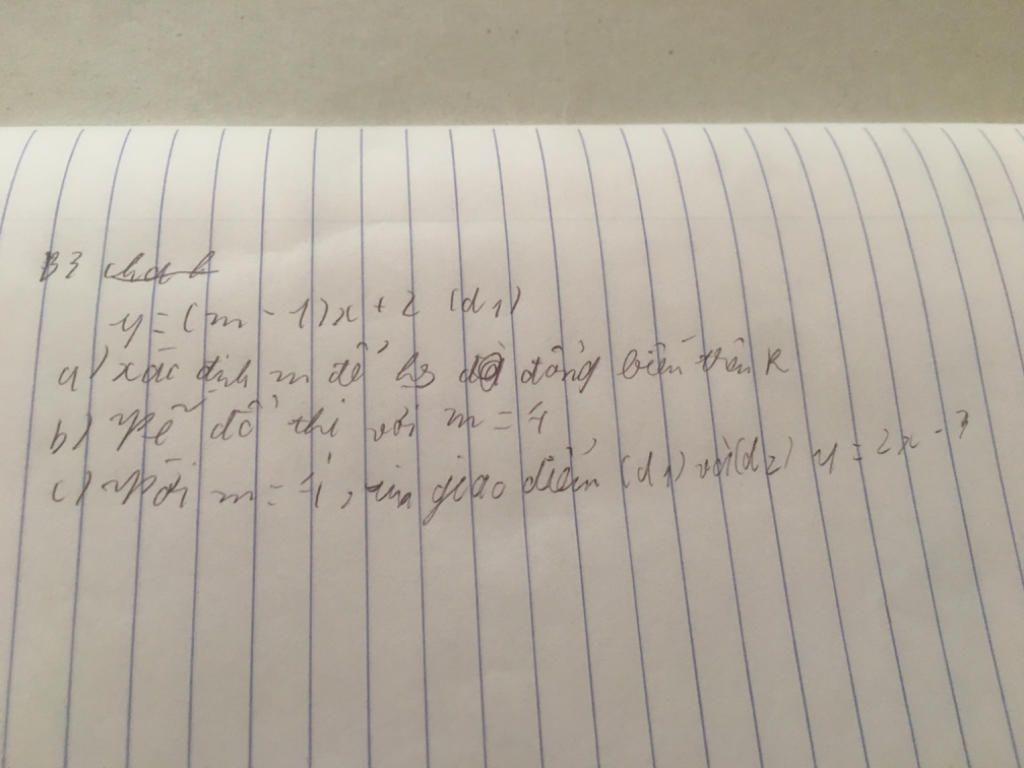 B3
y = (m - 1)x + 2 (d1)
a) xác định m để hs đồng biến trên R
b) Vẽ đồ thi với m = 4
c) Với m = 4, tìm giao điểm (d1) với (d2) y = 2x - 3